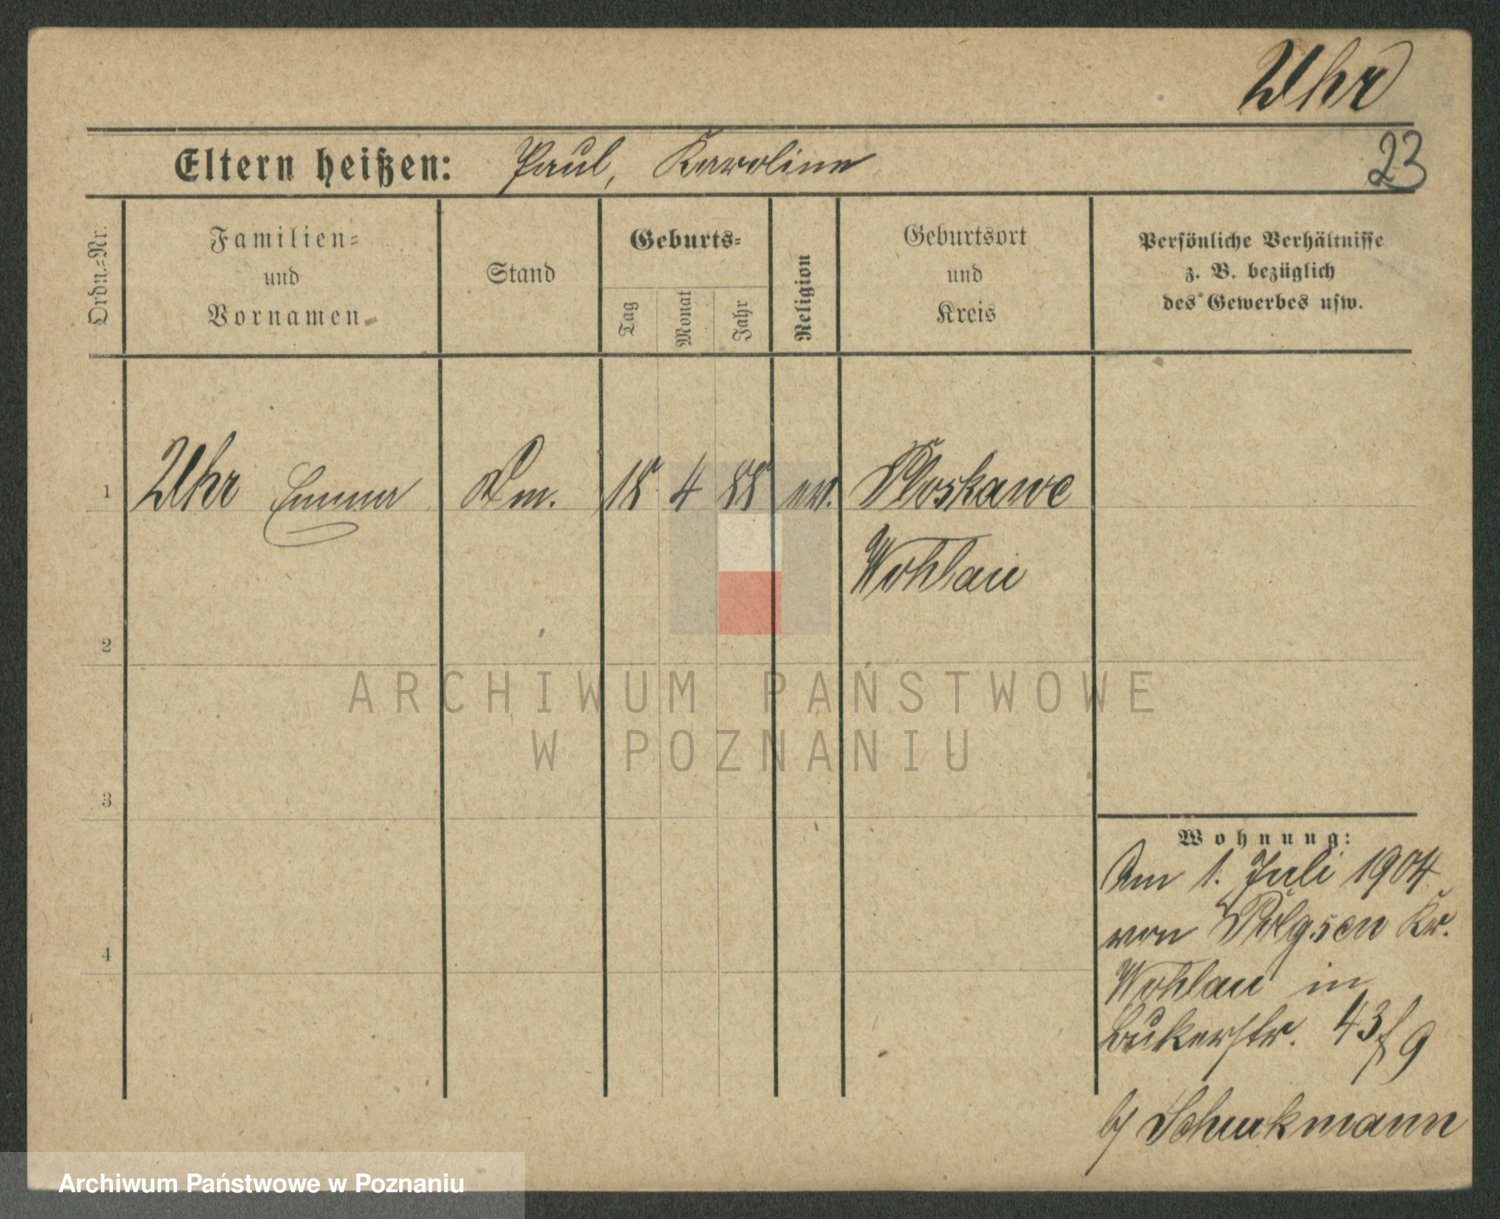 Uhr
Eltern heißen: Paul, Karoline
23
Ordn.-Nr.
Familien-
und
Vornamen
Stand
Geburts-
Tag
Monat
Jahr
Religion
Geburtsort
und
Kreis
Persönliche Verhältnisse
z. B. bezüglich
des Gewerbes usw.
1 Uhr Emma 18 4 88 ev. Ploskawe
Wohlau
2
ARCHIWUM PAŃSTWOWE
W POZNANIU
3
Wohnung:
Am 1. Juli 1904
von Polgsen Kr.
Wohlau in
Bukerstr. 43/9
4
b/
Archiwum Państwowe w Poznaniu